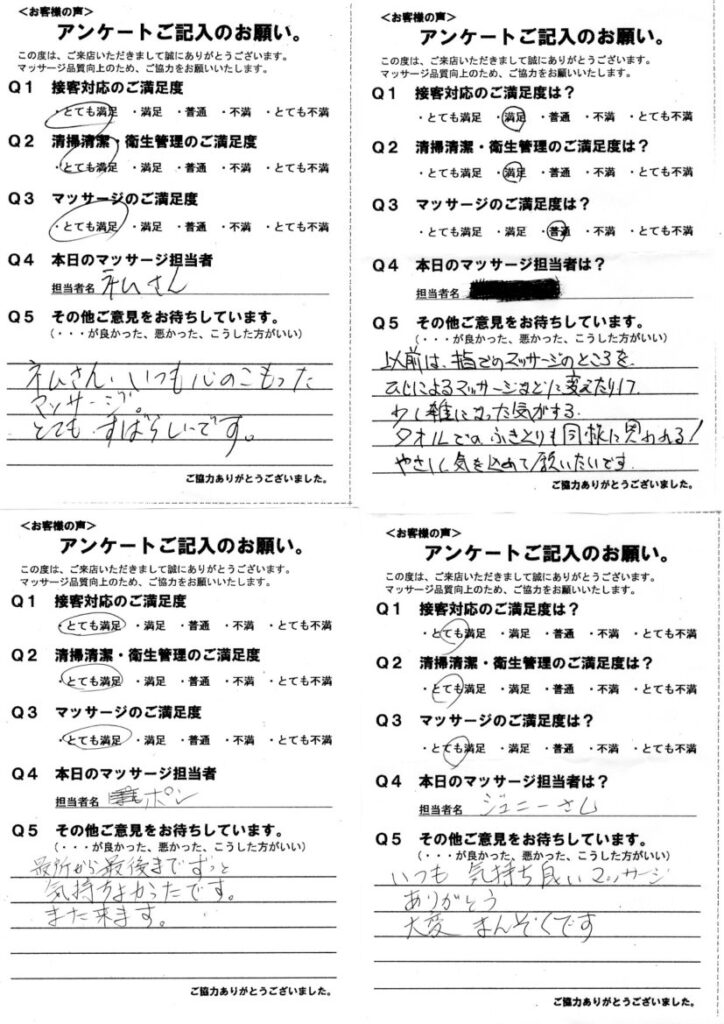 ＜お客様の声＞
アンケートご記入のお願い。
この度は、ご来店いただきまして誠にありがとうございます。
マッサージ品質向上のため、ご協力をお願いいたします。
Q1 接客対応のご満足度
・とても満足 ・満足 ・普通 ・不満 ・とても不満
Q2 清掃清潔・衛生管理のご満足度
・とても満足 ・満足 ・普通 ・不満 ・とても不満
Q3 マッサージのご満足度
・とても満足 ・満足 ・普通 ・不満 ・とても不満
Q4 本日のマッサージ担当者
担当者名 ネムさん
Q5 その他ご意見をお待ちしています。
（・・・が良かった、悪かった、こうした方がいい）
ネムさん、いつも心のこもった
マッサージ。
とても すばらしいです。
ご協力ありがとうございました。
＜お客様の声＞
アンケートご記入のお願い。
この度は、ご来店いただきまして誠にありがとうございます。
マッサージ品質向上のため、ご協力をお願いいたします。
Q1 接客対応のご満足度は？
・とても満足 ・満足 ・普通 ・不満 ・とても不満
Q2 清掃清潔・衛生管理のご満足度は？
・とても満足 ・満足 ・普通 ・不満 ・とても不満
Q3 マッサージのご満足度は？
・とても満足 ・満足 ・普通 ・不満 ・とても不満
Q4 本日のマッサージ担当者は？
担当者名
Q5 その他ご意見をお待ちしています。
（・・・が良かった、悪かった、こうした方がいい）
以前は、指でのマッサージのところを
ひじによるマッサージなどに変えたりして
少し雑になった気がする
タオルでのふきとりも同様に思われる！
やさしく気を込めて願いたいです
ご協力ありがとうございました。
＜お客様の声＞
アンケートご記入のお願い。
この度は、ご来店いただきまして誠にありがとうございます。
マッサージ品質向上のため、ご協力をお願いいたします。
Q1 接客対応のご満足度
・とても満足 ・満足 ・普通 ・不満 ・とても不満
Q2 清掃清潔・衛生管理のご満足度
・とても満足 ・満足 ・普通 ・不満 ・とても不満
Q3 マッサージのご満足度
・とても満足 ・満足 ・普通 ・不満 ・とても不満
Q4 本日のマッサージ担当者
担当者名 ポン
Q5 その他ご意見をお待ちしています。
（・・・が良かった、悪かった、こうした方がいい）
最所から最後まで ずっと
気持ちよかったです。
また来ます。
ご協力ありがとうございました。
＜お客様の声＞
アンケートご記入のお願い。
この度は、ご来店いただきまして誠にありがとうございます。
マッサージ品質向上のため、ご協力をお願いいたします。
Q1 接客対応のご満足度は？
・とても満足 ・満足 ・普通 ・不満 ・とても不満
Q2 清掃清潔・衛生管理のご満足度は？
・とても満足 ・満足 ・普通 ・不満 ・とても不満
Q3 マッサージのご満足度は？
・とても満足 ・満足 ・普通 ・不満 ・とても不満
Q4 本日のマッサージ担当者は？
担当者名 ジュニーさん
Q5 その他ご意見をお待ちしています。
（・・・が良かった、悪かった、こうした方がいい）
いつも 気持ち良いマッサージ
ありがとう
大変 まんぞくです
ご協力ありがとうございました。